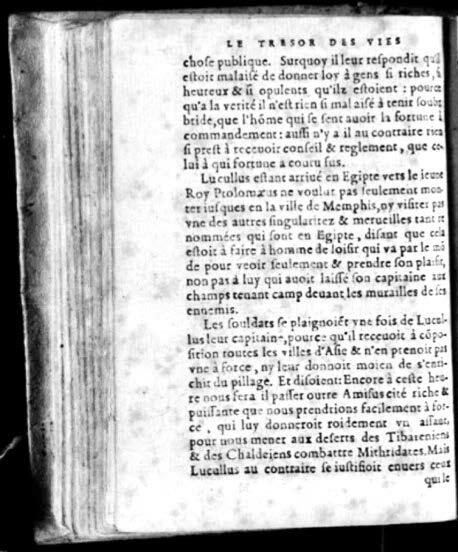 LE TRESOR DES VIES
chose publique. Surquoy il leur respondit qu'il
estoit malaisé de donner loy à gens si riches, si
heureux & si opulents qu'ilz estoient: pource
qu'a la verité il n'est rien si malaisé à tenir soubz
bride, que l'hõme qui se sent auoir la fortune à
commandement: aussi n'y a il au contraire rien
si prest à receuoir conseil & reglement, que ce-
lui à qui fortune a couru sus.
Lucullus estant arriué en Egipte vers le ieune
Roy Ptolomæus ne voulut pas seulement mon-
ter iusques en la ville de Memphis, ny visiter pas
vne des autres singularitez & merueilles tant re
nommées qui sont en Egipte, disant que cela
estoit à faire à homme de loisir qui va par le mõ
de pour veoir seulement & prendre son plaisir,
non pas à luy qui auoit laissé son capitaine aux
champs tenant camp deuant les murailles de ses
ennemis.
Les souldats se plaignoiẽt vne fois de Lucul-
lus leur capitaine, pource qu'il receuoit à cõpo-
sition toutes les villes d'Asie & n'en prenoit pas
vne à force, ny leur donnoit moien de s'enri-
chir du pillage. Et disoient: Encore à ceste heu-
re nous fera il passer outre Amisus cité riche &
puissante que nous prendrions facilement à for-
ce, qui luy donneroit roidement vn assaut,
pour nous mener aux deserts des Tibareniens
& des Chaldeiens combattre Mithridates. Mais
Lucullus au contraire se iustifioit enuers ceux
qui le